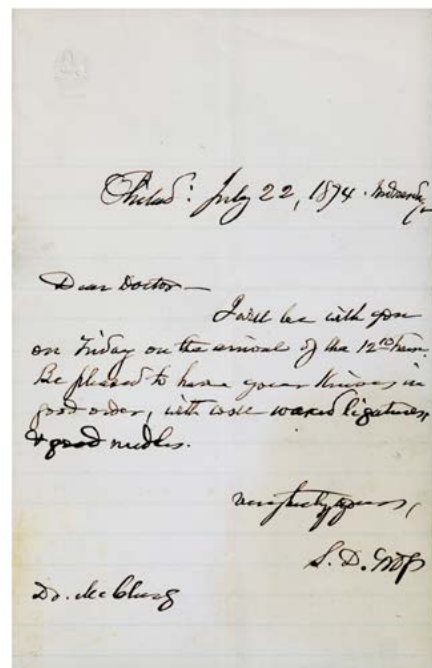 Philad: July 22, 1874. Wednesday
Dear Doctor—
I will be with you
on Friday on the arrival of the 12 10 train.
Be pleased to have your Knives in
good order, with well waxed ligatures,
& good needles.
Very truly yours,
S. D. Gross
Dr. McClurg